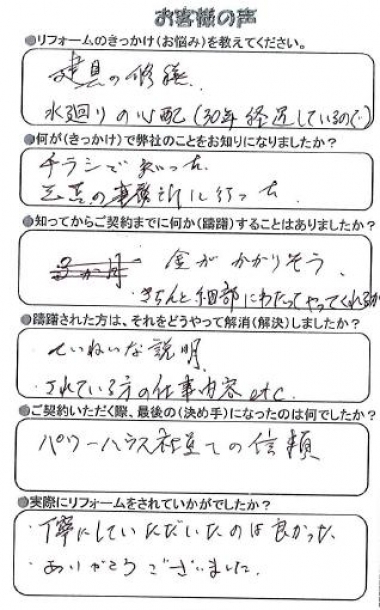 お客様の声
●リフォームのきっかけ(お悩み)を教えてください。
建具の修繕
水廻りの心配(30年経過しているので)
●何が(きっかけ)で弊社のことをお知りになりましたか?
チラシで知った
の事務所に行った
●知ってからご契約までに何か(躊躇)することはありましたか?
金がかかりそう、
・きちんと細部にわたってやってくれるか
●躊躇された方は、それをどうやって解消(解決)しましたか?
・ていねいな説明
・されている方の仕事内容etc
●ご契約いただく際、最後の(決め手)になったのは何でしたか?
パワーハウス社全ての信頼
●実際にリフォームをされていかがでしたか?
・丁寧にしていただいたのは良かった
・ありがとうございました。